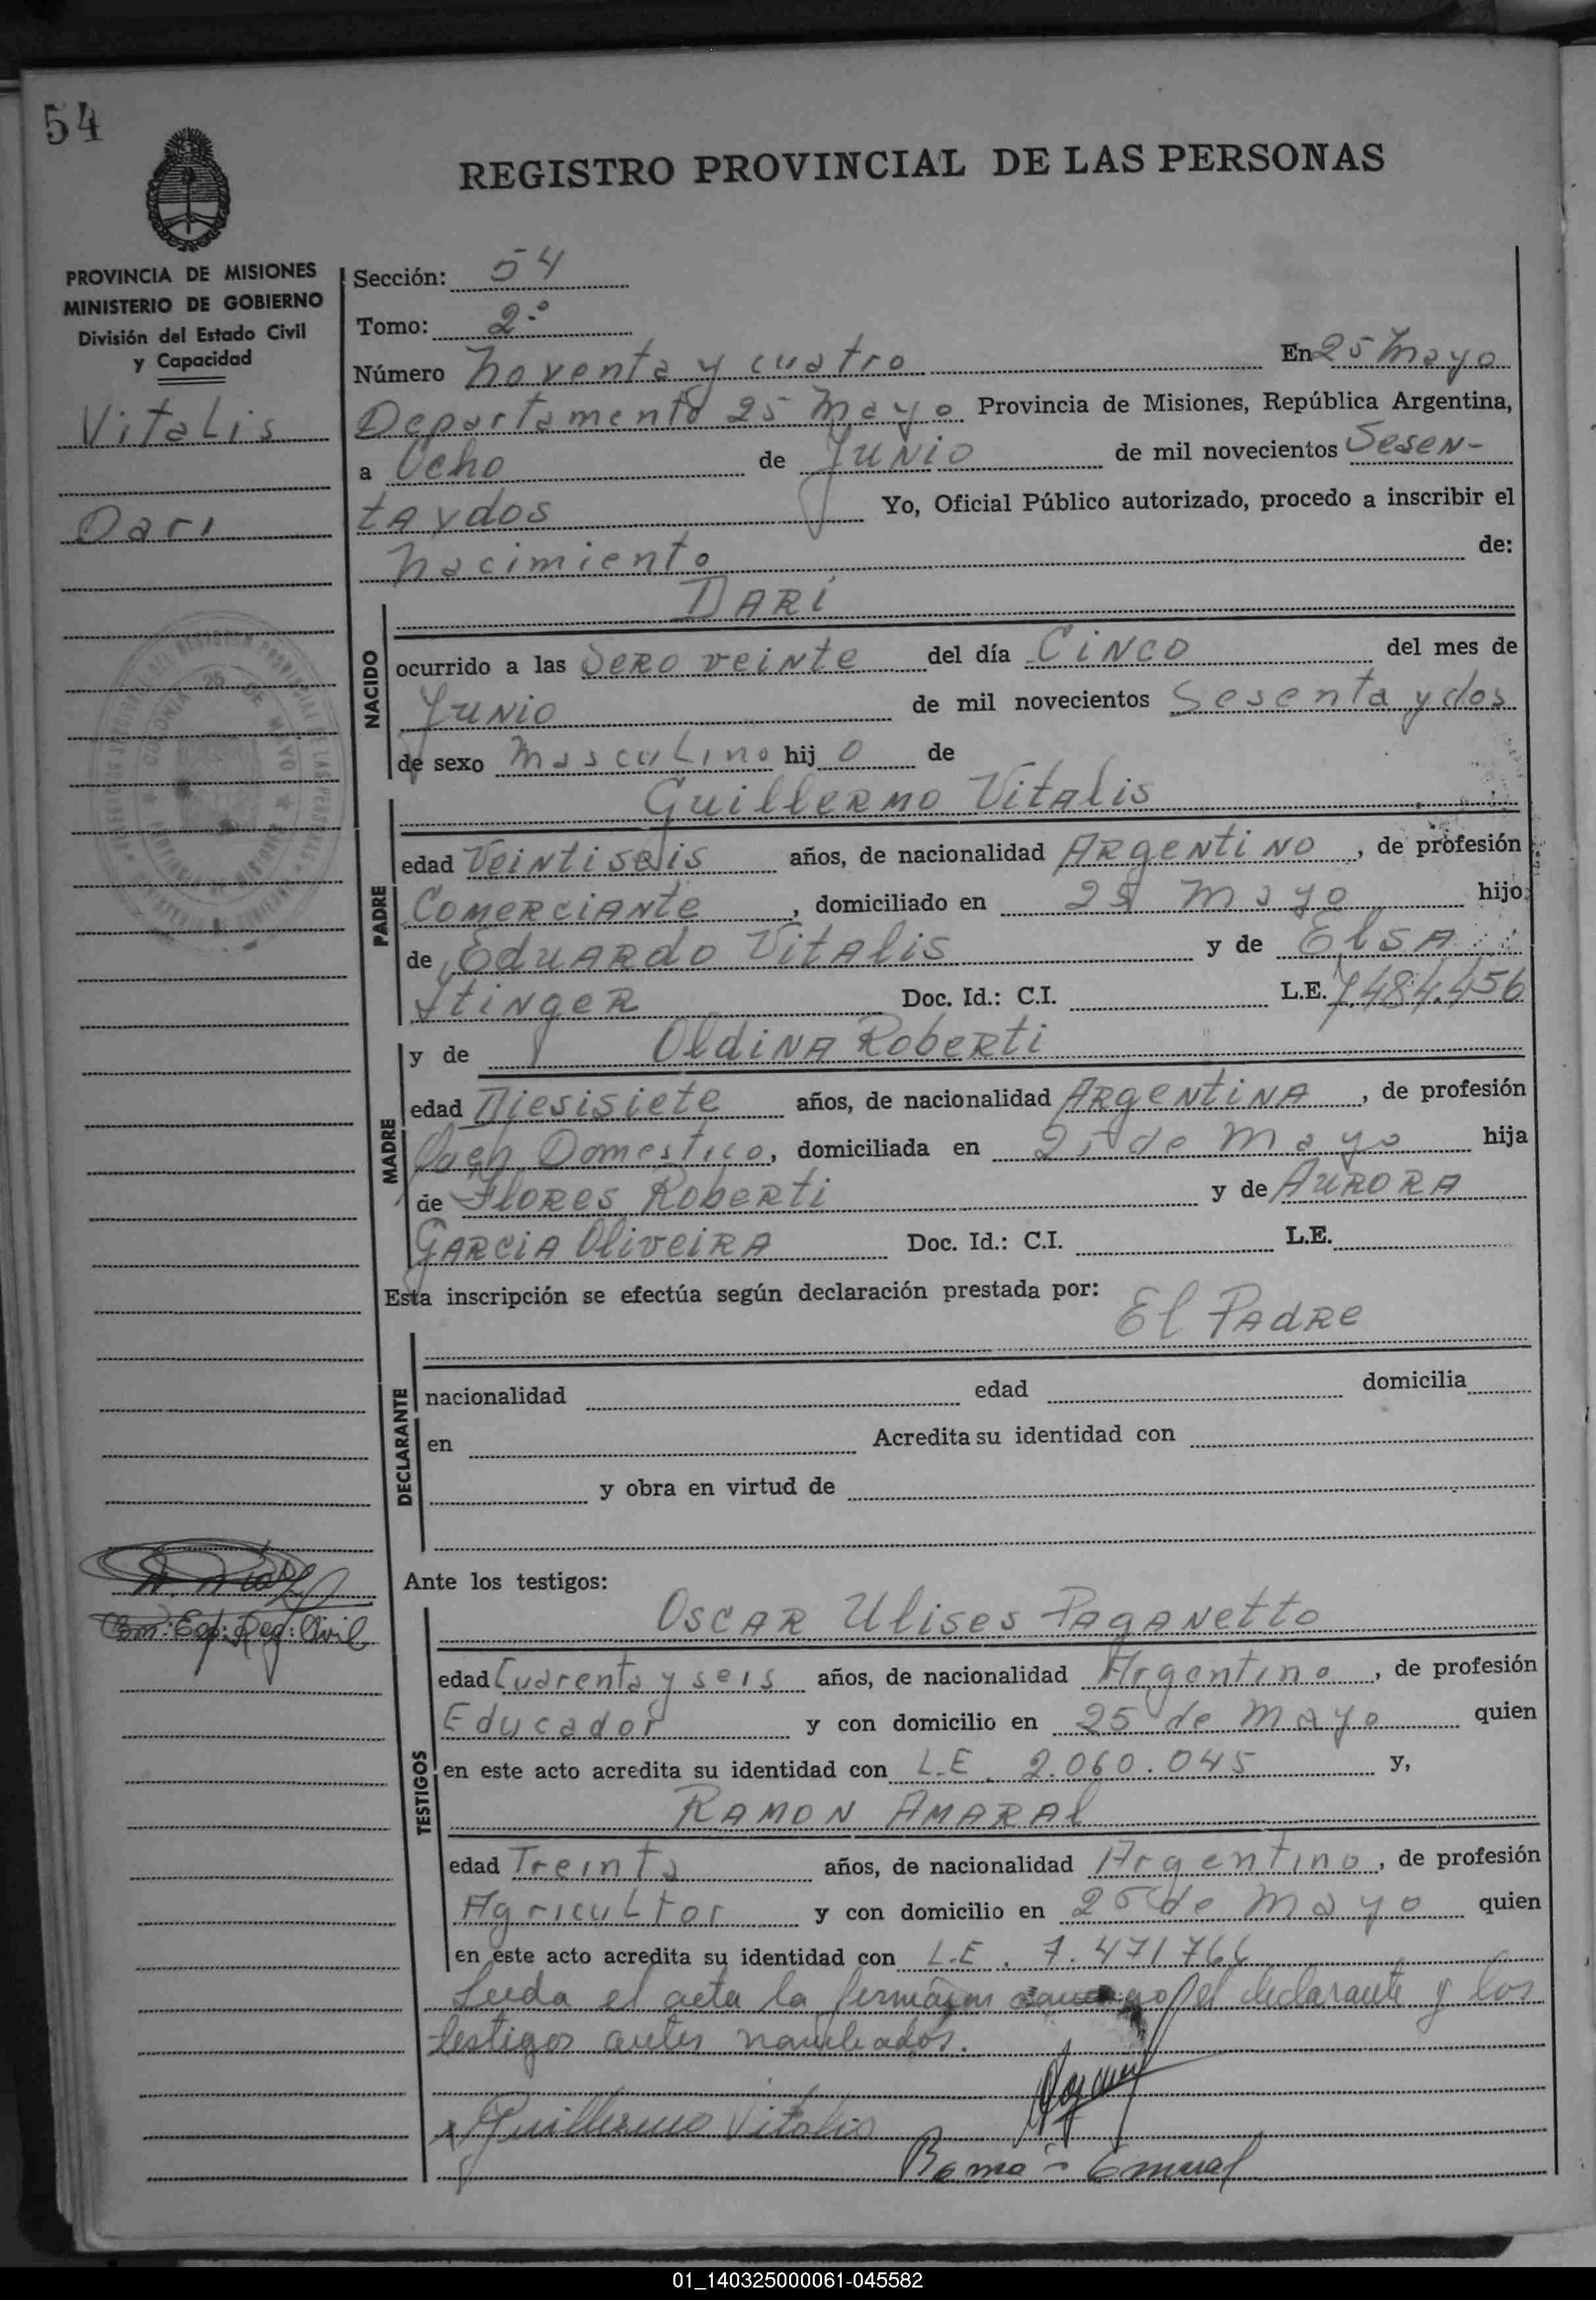 54
REGISTRO PROVINCIAL DE LAS PERSONAS
PROVINCIA DE MISIONES
MINISTERIO DE GOBIERNO
División del Estado Civil
y Capacidad
Vitalis
Dari
Sección: 54
Tomo: 2º
Número Noventa y cuatro En 25 Mayo
Departamento 25 Mayo Provincia de Misiones, República Argentina,
a Ocho de Junio de mil novecientos Sesen-
taydos Yo, Oficial Público autorizado, procedo a inscribir el
Nacimiento de:
NACIDO
DARÍ
ocurrido a las Sero veinte del día Cinco del mes de
Junio de mil novecientos Sesenta y dos
de sexo masculino hij o de
PADRE
Guillermo Vitalis
edad Veintiseis años, de nacionalidad Argentino, de profesión
Comerciante, domiciliado en 25 Mayo hijo
de Eduardo Vitalis y de Elsa
Stinger Doc. Id.: C.I. L.E. 7.484.456
MADRE
y de Oldina Roberti
edad Diesisiete años, de nacionalidad Argentina, de profesión
Domestico, domiciliada en 25 de Mayo hija
de Flores Roberti y de Aurora
Garcia Oliveira Doc. Id.: C.I. L.E.
Esta inscripción se efectúa según declaración prestada por:
El Padre
DECLARANTE
nacionalidad edad domicilia
en Acredita su identidad con
y obra en virtud de
Ante los testigos:
TESTIGOS
Oscar Ulises Paganetto
edad Cuarenta y seis años, de nacionalidad Argentino, de profesión
Educador y con domicilio en 25 de Mayo quien
en este acto acredita su identidad con L.E. 2.060.045 y,
Ramon Amaral
edad Treinta años, de nacionalidad Argentino, de profesión
Agricultor y con domicilio en 25 de Mayo quien
en este acto acredita su identidad con L.E. 7.471766
Leida el acta la firman el declarante y los
testigos antes nombrados.
Guillermo Vitalis
Reg: Civil
01_140325000061-045582